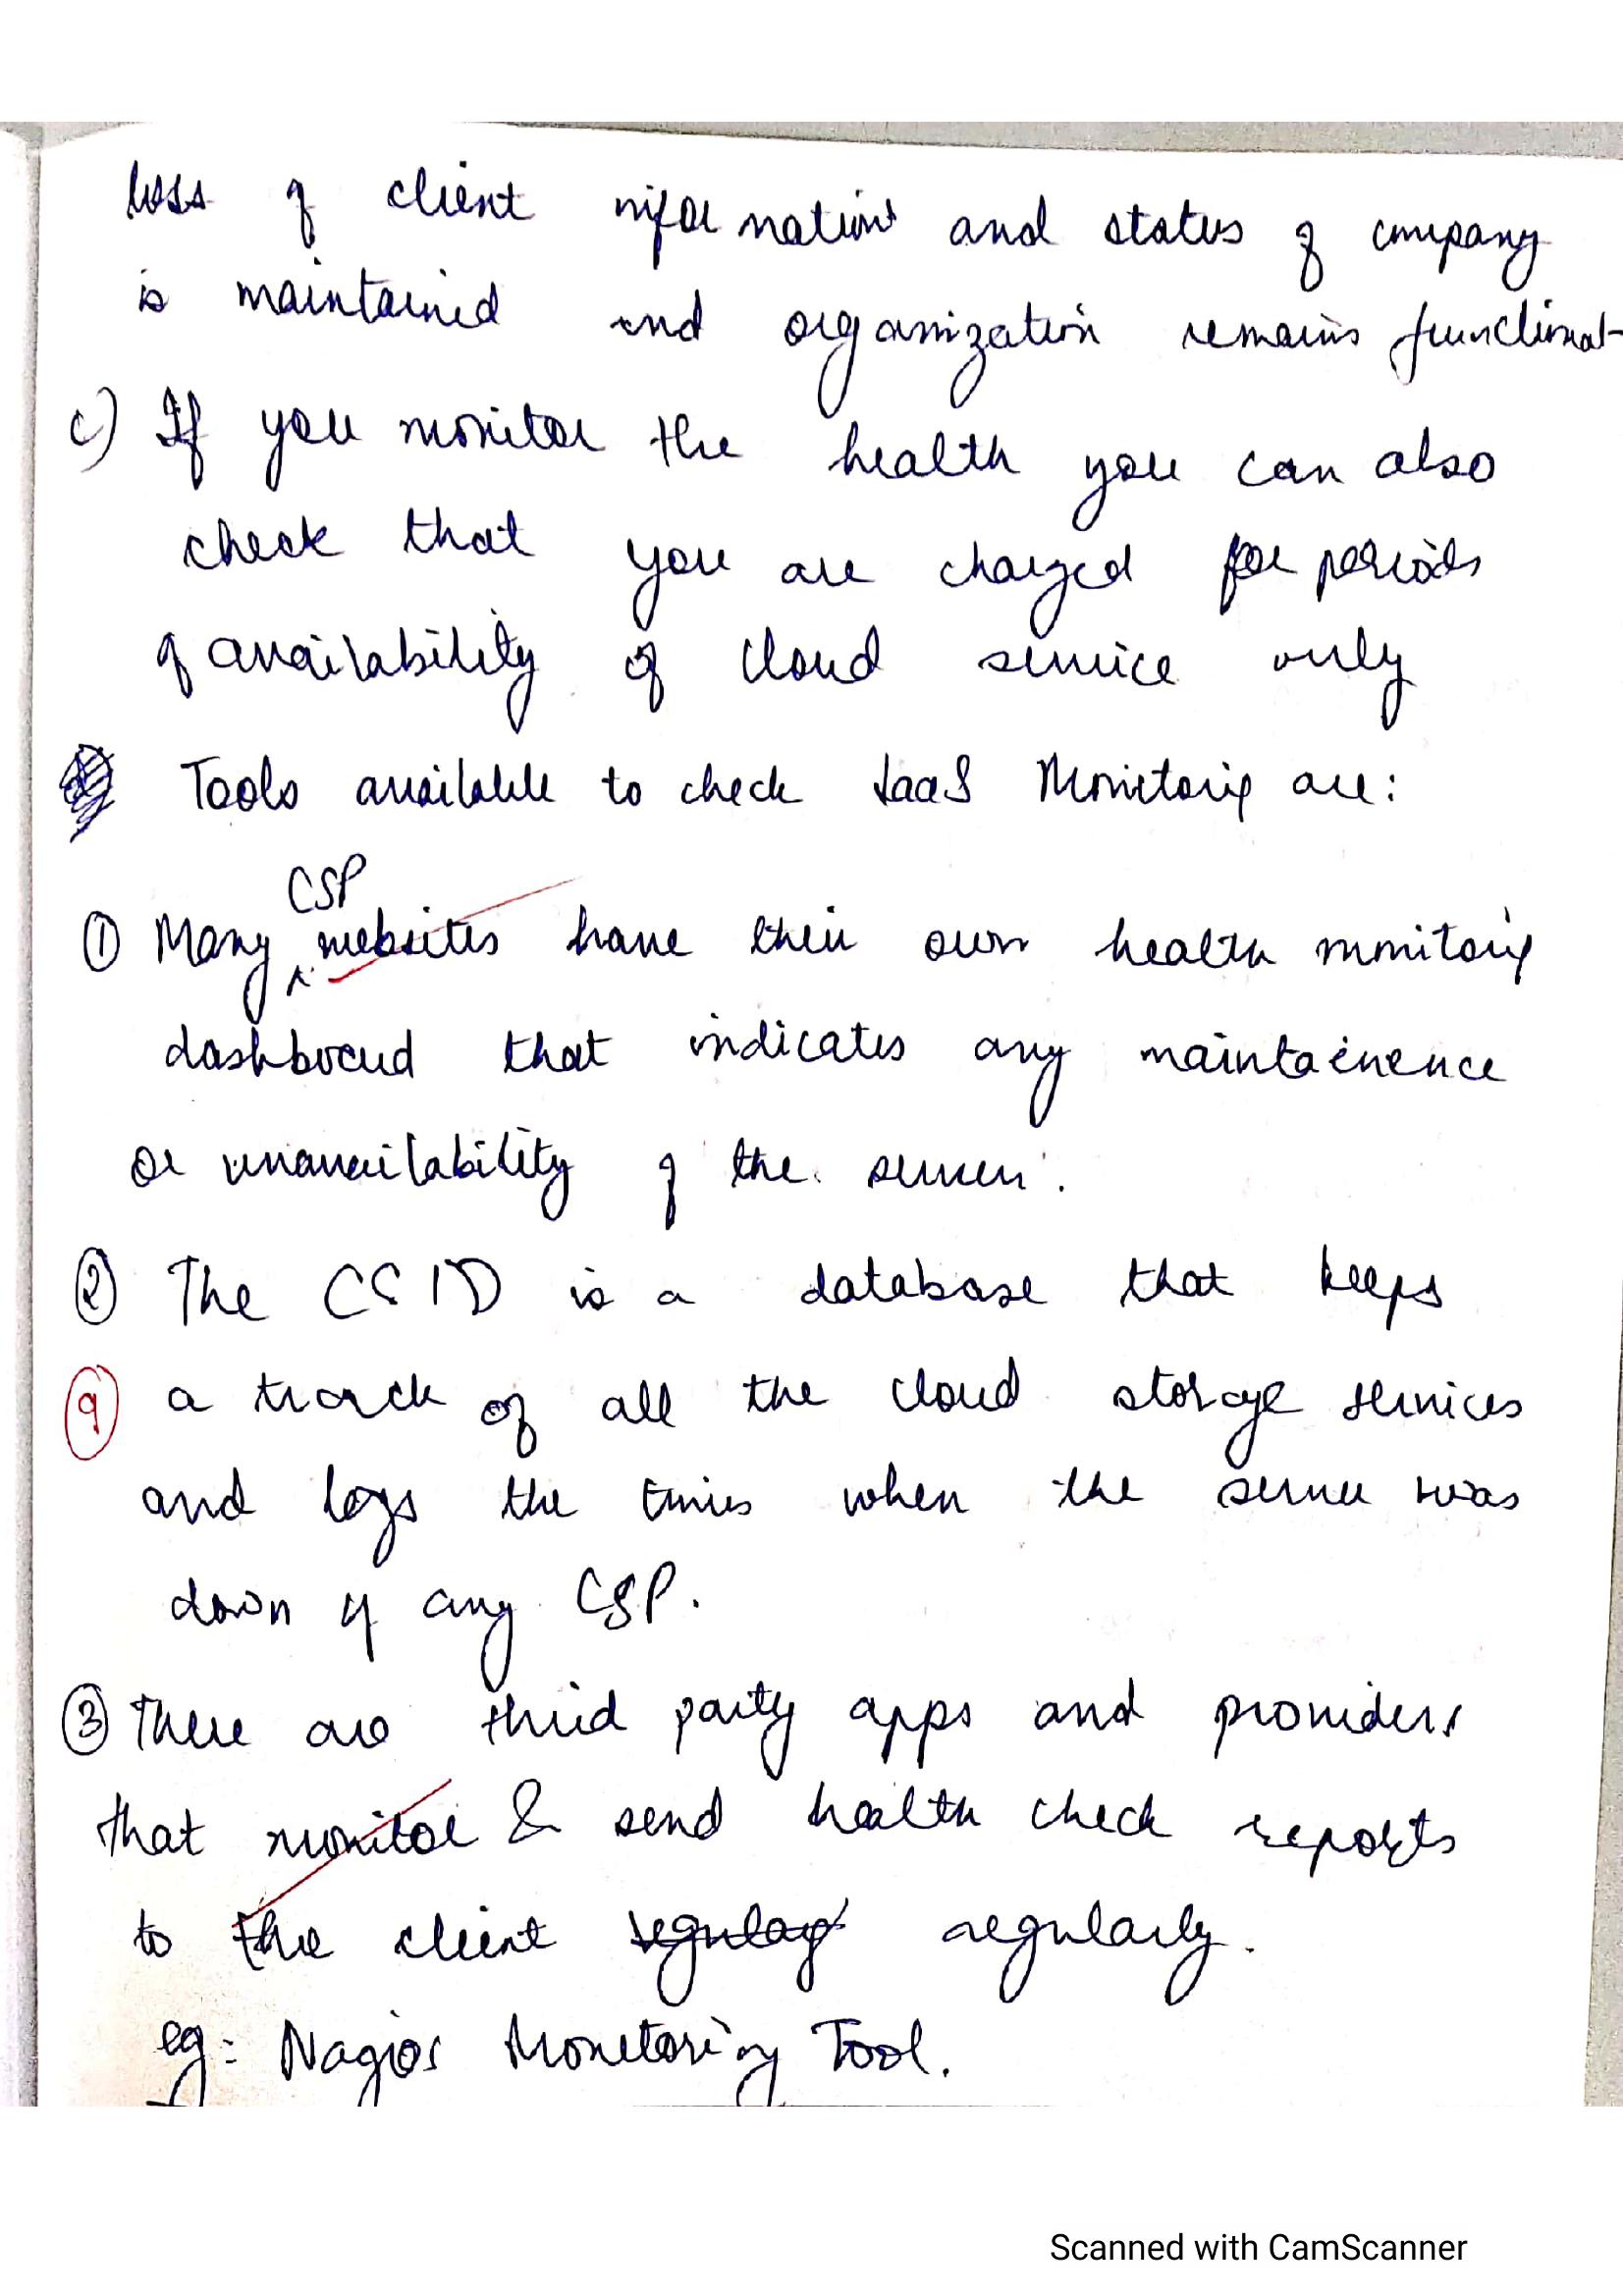 loss of client information and status of company
is maintained and organization remains functional
c) If you monitor the health you can also
check that you are charged for periods
of availability of cloud service only
Tools available to check SaaS Monitoring are:
CSP
① Many websites have their own health monitoring
dashboard that indicates any maintainence
or unavailability of the server.
② The CSID is a database that keeps
9 a track of all the cloud storage services
and logs the times when the server was
down of any CSP.
③ There are third party apps and providers
that monitor & send health check reports
to the client regularly.
eg: Nagios Monitoring Tool.
Scanned with CamScanner